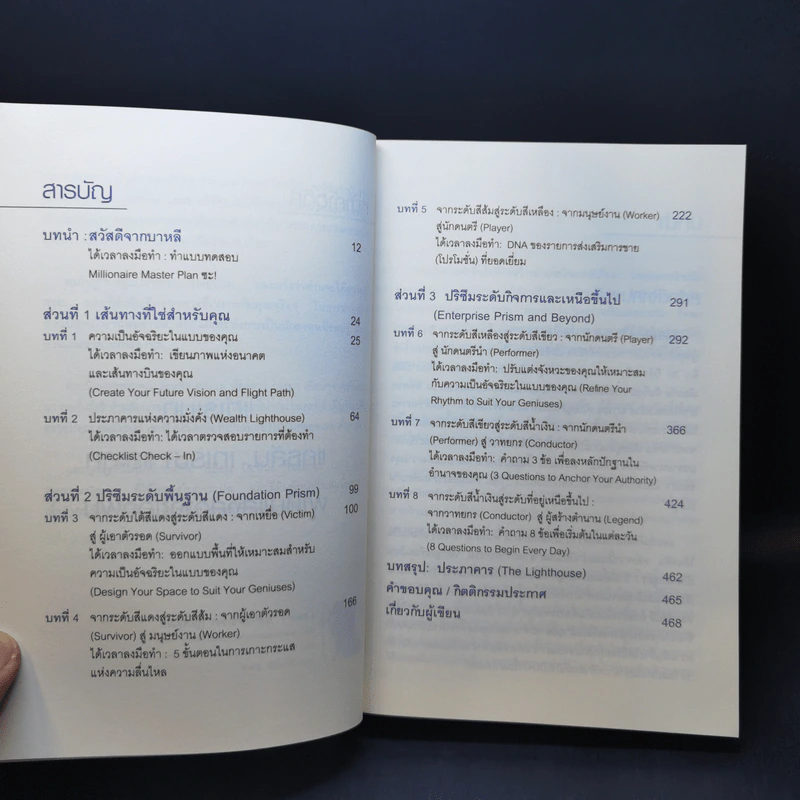 สารบัญ
บทนำ : สวัสดีจากบาหลี 12
ได้เวลาลงมือทำ : ทำแบบทดสอบ
Millionaire Master Plan ซะ!
ส่วนที่ 1 เส้นทางที่ใช่สำหรับคุณ 24
บทที่ 1 ความเป็นอัจฉริยะในแบบของคุณ 25
ได้เวลาลงมือทำ: เขียนภาพแห่งอนาคต
และเส้นทางบินของคุณ
(Create Your Future Vision and Flight Path)
บทที่ 2 ประภาคารแห่งความมั่งคั่ง (Wealth Lighthouse) 64
ได้เวลาลงมือทำ: ได้เวลาตรวจสอบรายการที่ต้องทำ
(Checklist Check – In)
ส่วนที่ 2 ปริซึมระดับพื้นฐาน (Foundation Prism) 99
บทที่ 3 จากระดับใต้สีแดงสู่ระดับสีแดง : จากเหยื่อ (Victim) 100
สู่ ผู้เอาตัวรอด (Survivor)
ได้เวลาลงมือทำ: ออกแบบพื้นที่ให้เหมาะสมสำหรับ
ความเป็นอัจฉริยะในแบบของคุณ
(Design Your Space to Suit Your Geniuses)
บทที่ 4 จากระดับสีแดงสู่ระดับสีส้ม : จากผู้เอาตัวรอด 166
(Survivor) สู่ มนุษย์งาน (Worker)
ได้เวลาลงมือทำ : 5 ขั้นตอนในการเกาะกระแส
แห่งความลื่นไหล
บทที่ 5 จากระดับสีส้มสู่ระดับสีเหลือง : จากมนุษย์งาน (Worker) 222
สู่นักดนตรี (Player)
ได้เวลาลงมือทำ: DNA ของรายการส่งเสริมการขาย
(โปรโมชั่น) ที่ยอดเยี่ยม
ส่วนที่ 3 ปริซึมระดับกิจการและเหนือขึ้นไป 291
(Enterprise Prism and Beyond)
บทที่ 6 จากระดับสีเหลืองสู่ระดับสีเขียว : จากนักดนตรี (Player) 292
สู่ นักดนตรีนำ (Performer)
ได้เวลาลงมือทำ: ปรับแต่งจังหวะของคุณให้เหมาะสม
กับความเป็นอัจฉริยะในแบบของคุณ (Refine Your
Rhythm to Suit Your Geniuses)
บทที่ 7 จากระดับสีเขียวสู่ระดับสีน้ำเงิน : จากนักดนตรีนำ 366
(Performer) สู่ วาทยกร (Conductor)
ได้เวลาลงมือทำ: คำถาม 3 ข้อ เพื่อลงหลักปักฐานใน
อำนาจของคุณ (3 Questions to Anchor Your Authority)
บทที่ 8 จากระดับสีน้ำเงินสู่ระดับที่อยู่เหนือขึ้นไป : 424
จากวาทยกร (Conductor) สู่ ผู้สร้างตำนาน (Legend)
ได้เวลาลงมือทำ: คำถาม 8 ข้อเพื่อเริ่มต้นในแต่ละวัน
(8 Questions to Begin Every Day)
บทสรุป: ประภาคาร (The Lighthouse) 462
คำขอบคุณ / กิตติกรรมประกาศ 465
เกี่ยวกับผู้เขียน 468